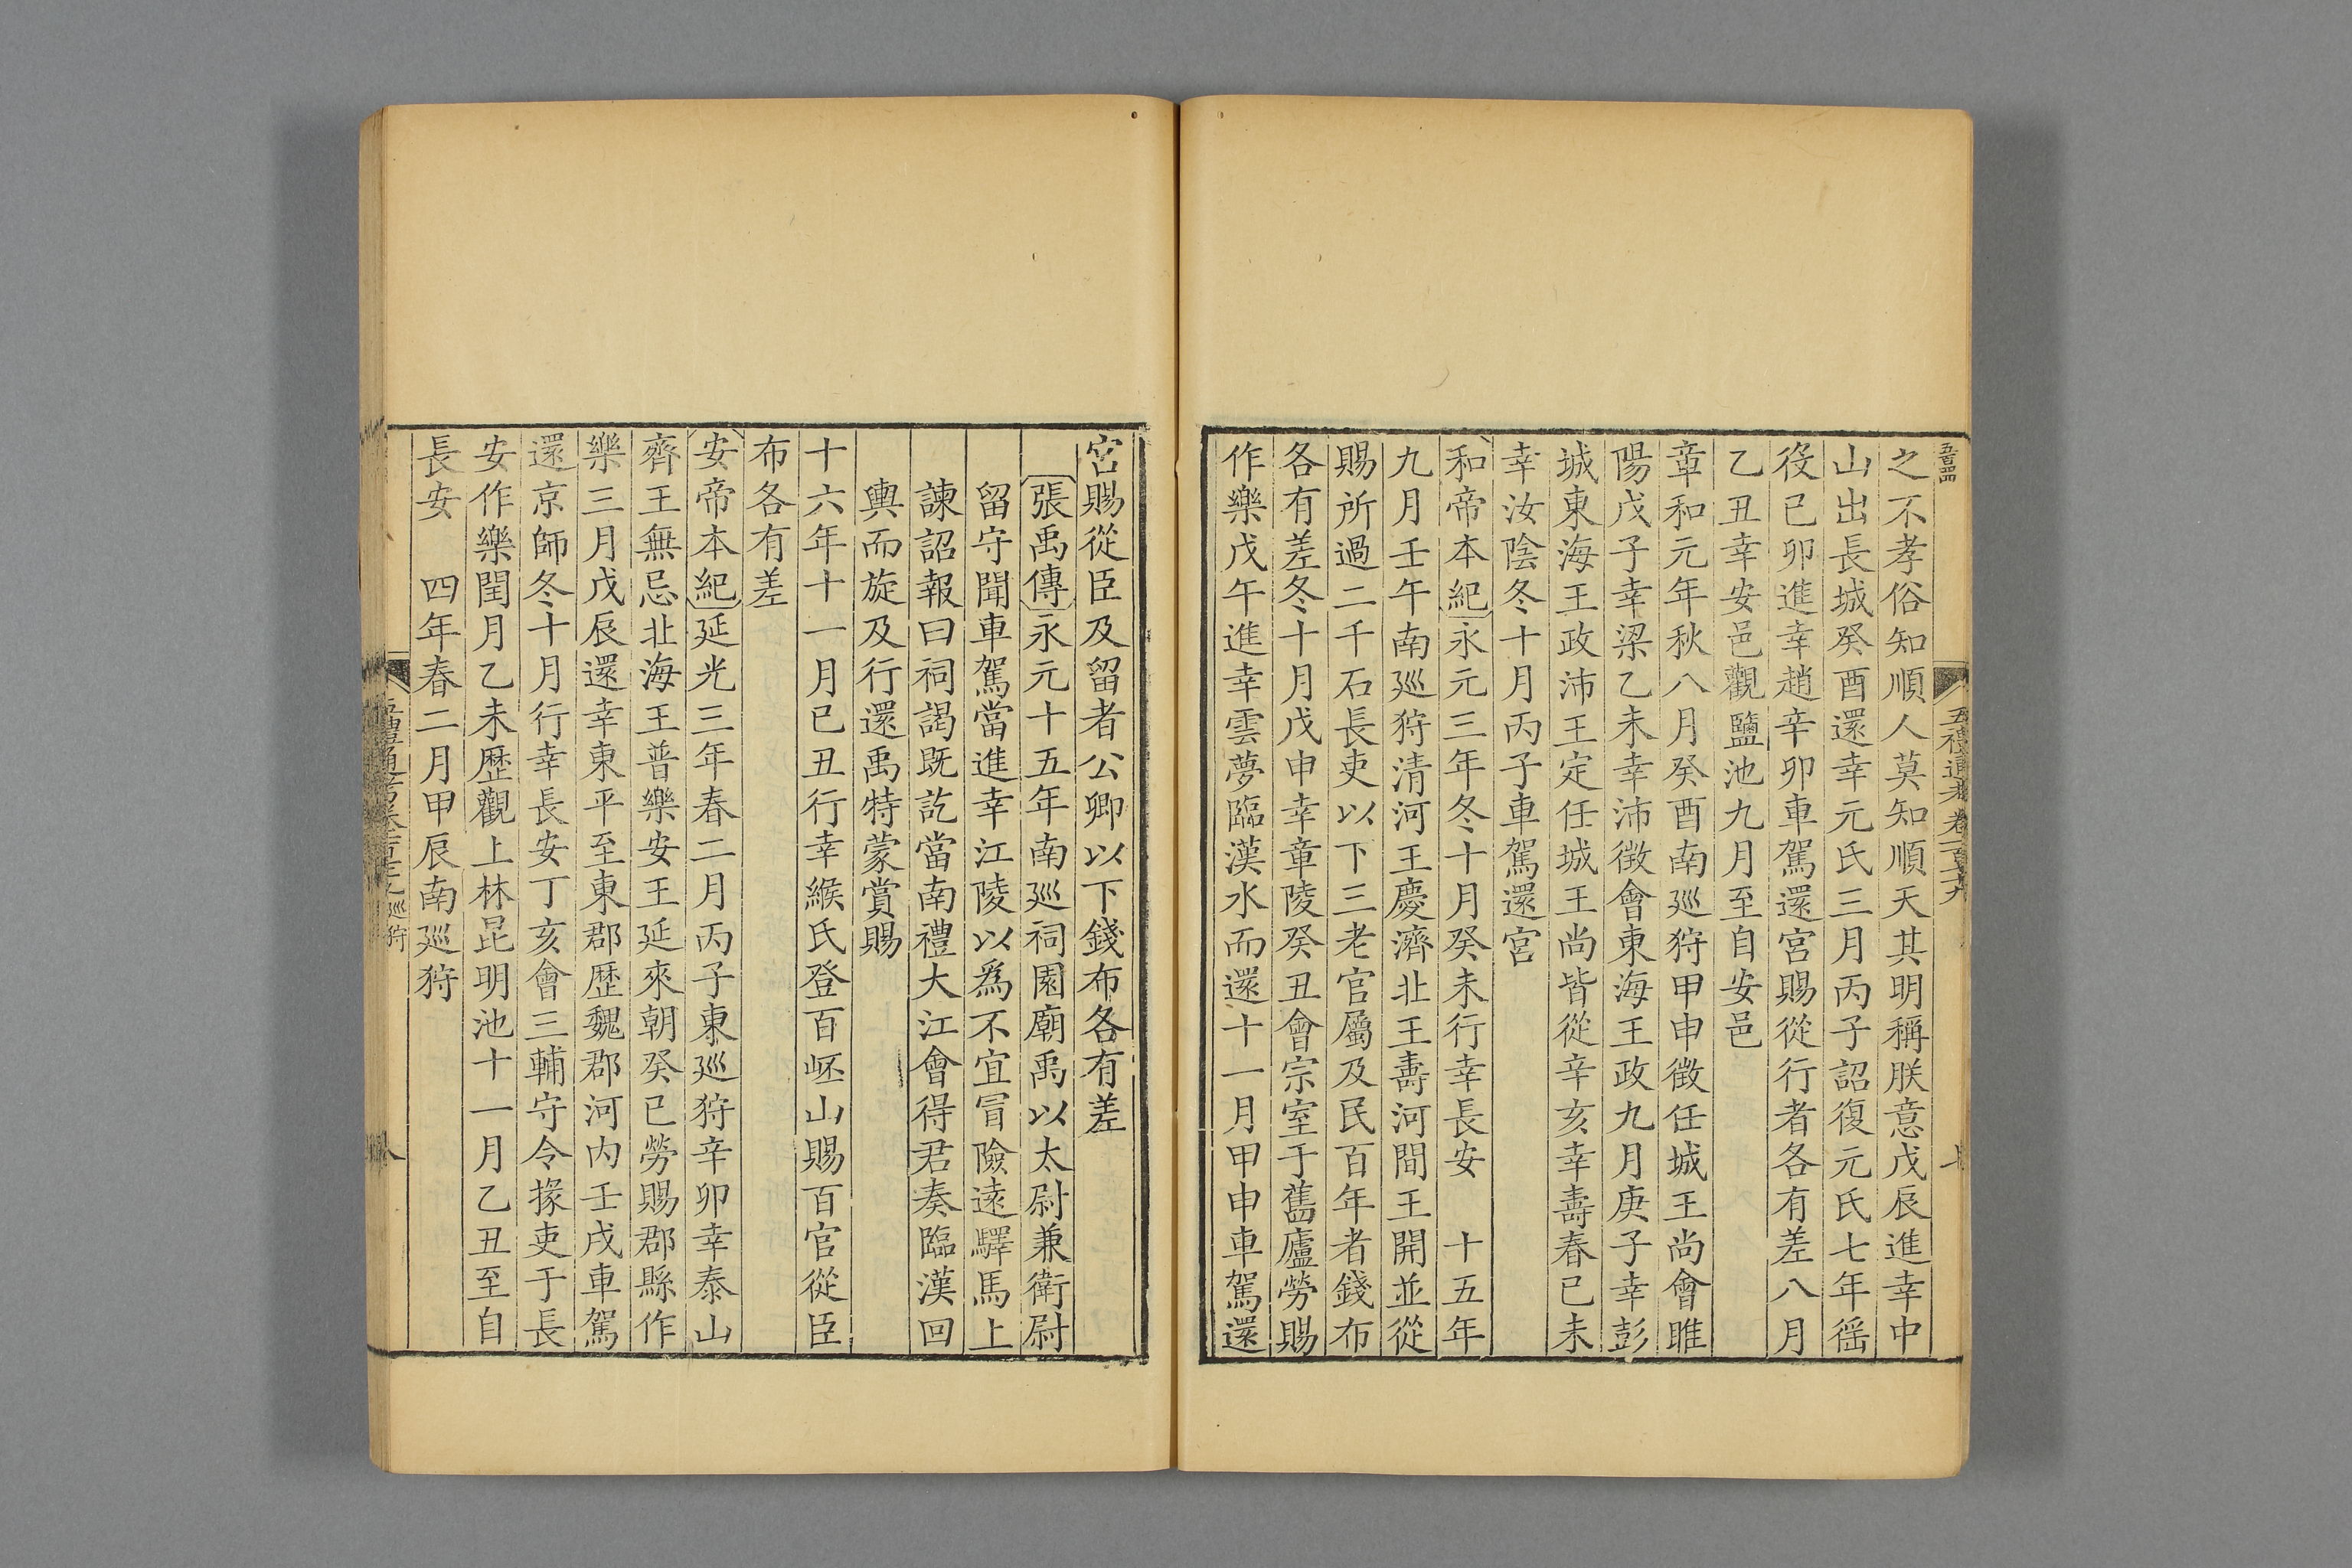 五百四
五禮通考卷一百七十九
之不孝俗知順人莫知順天其明稱朕意戊辰進幸中
山出長城癸酉還幸元氏三月丙子詔復元氏七年徭
役已卯進幸趙辛卯車駕還宮賜從行者各有差八月
乙丑幸安邑觀鹽池九月至自安邑
章和元年秋八月癸酉南廵狩甲申徵任城王尚會睢
陽戊子幸梁乙未幸沛徵會東海王政九月庚子幸彭
城東海王政沛王定任城王尚皆從辛亥幸壽春已未
幸汝陰冬十月丙子車駕還宮
和帝本紀永元三年冬十月癸未行幸長安　十五年
九月壬午南廵狩清河王慶濟北王壽河間王開並從
賜所過二千石長吏以下三老官屬及民百年者錢布
各有差冬十月戊申幸章陵癸丑會宗室于舊廬勞賜
作樂戊午進幸雲夢臨漢水而還十一月甲申車駕還
宮賜從臣及留者公卿以下錢布各有差
張禹傳永元十五年南廵祠園廟禹以太尉兼衛尉
留守聞車駕當進幸江陵以爲不宜冒險遠驛馬上
諫詔報曰祠謁既訖當南禮大江會得君奏臨漢回
輿而旋及行還禹特蒙賞賜
十六年十一月已丑行幸緱氏登百岯山賜百官從臣
布各有差
安帝本紀延光三年春二月丙子東廵狩辛卯幸泰山
齊王無忌北海王普樂安王延來朝癸巳勞賜郡縣作
樂三月戊辰還幸東平至東郡歷魏郡河内壬戌車駕
還京師冬十月行幸長安丁亥會三輔守令掾吏于長
安作樂閏月乙未歷觀上林昆明池十一月乙丑至自
長安　四年春二月甲辰南廵狩
廵狩